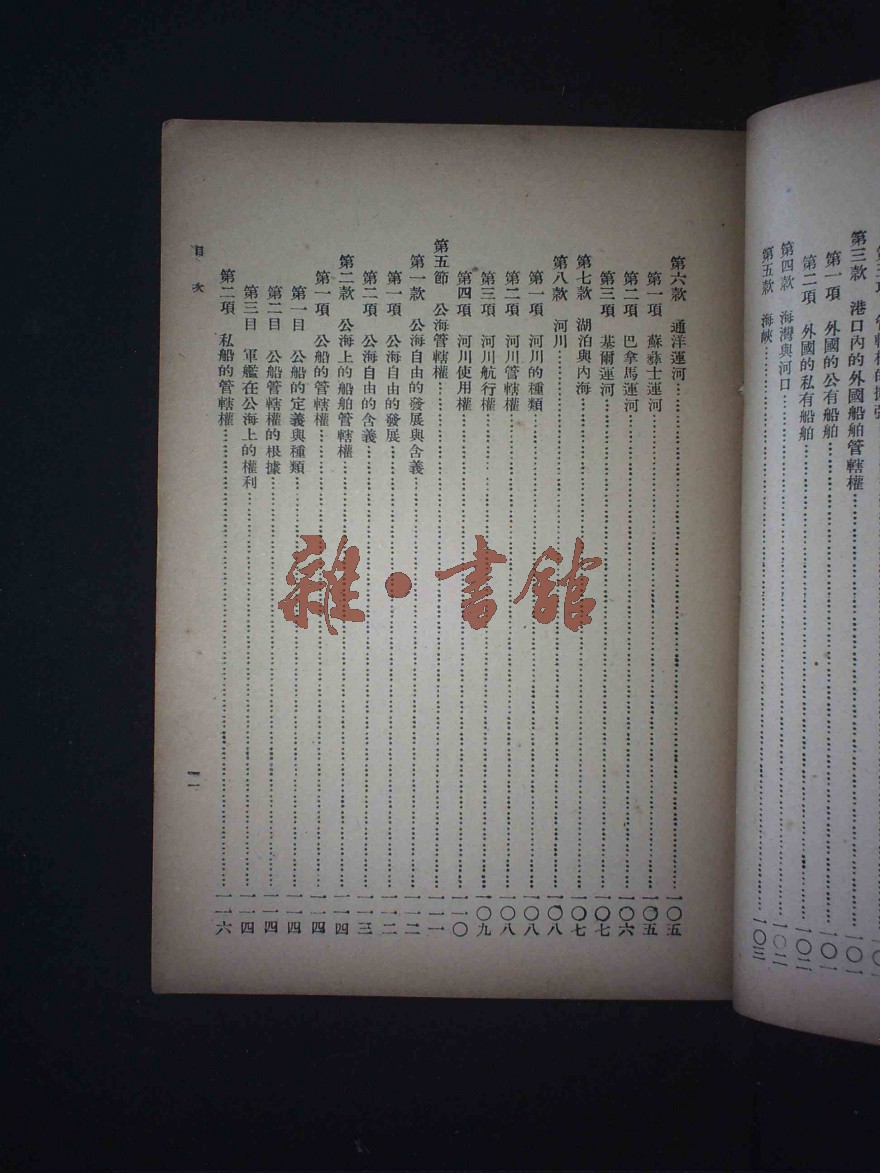 第三款 港口內的外國船舶管轄權……一〇一
第一項 外國的公有船舶……一〇一
第二項 外國的私有船舶……一〇二
第四款 海灣與河口……一〇二
第五款 海峽……一〇三
第六款 通洋運河……一〇五
第一項 蘇彝士運河……一〇五
第二項 巴拿馬運河……一〇六
第三項 基爾運河……一〇七
第七款 湖泊與內海……一〇七
第八款 河川……一〇八
第一項 河川的種類……一〇八
第二項 河川管轄權……一〇八
第三項 河川航行權……一〇九
第四項 河川使用權……一一〇
第五節 公海管轄權……一一一
第一款 公海自由的發展與含義……一一二
第一項 公海自由的發展……一一二
第二項 公海自由的含義……一一三
第二款 公海上的船舶管轄權……一一四
第一項 公船的管轄權……一一四
第一目 公船的定義與種類……一一四
第二目 公船管轄權的根據……一一四
第三目 軍艦在公海上的權利……一一四
第二項 私船的管轄權……一一六
目 次
雜·書館